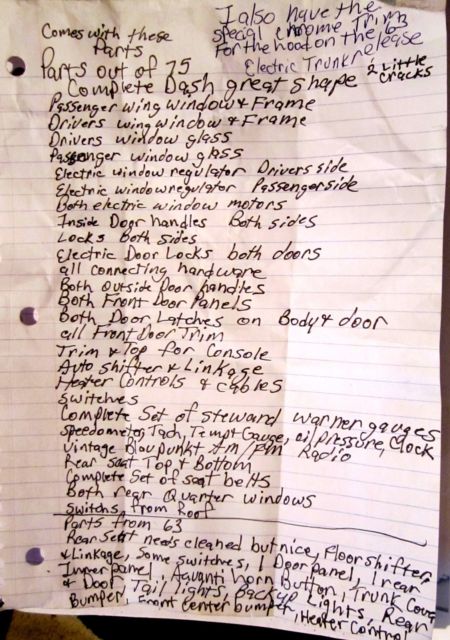 Comes with these
Parts
I also have the
special chrome Trim
For the hood on the 63
Electric Trunk release
Parts out of 75
Complete Dash great shape 2 Little
Cracks
Passenger wing window & Frame
Drivers wing window & Frame
Drivers window glass
Passenger window glass
Electric window regulator Drivers side
Electric window regulator Passenger side
Both electric window motors
Inside Door handles Both sides
Locks both sides
Electric Door Locks both doors
all connecting hardware
Both outside Door handles
Both Front Door Panels
Both Door Latches on Body & door
all Front Door Trim
Trim & Top for Console
Auto shifter & Linkage
Heater Controls & cables
switches
Complete Set of steward warner gauges
speedometer, Tach, Tempt Gauge, oil pressure, Clock
Vintage Blaupunkt Am/Fm Radio
Rear seat Top & Bottom
Complete set of seat belts
Both rear Quarter windows
Switchs from Roof
Parts from 63
Rear Seat needs cleaned but nice, Floor shifter
& Linkage, some switches, 1 Door panel, 1 rear
Inner panel, Avanti horn Button, Trunk Cover
& Door, Tail lights, backup Lights, Rear
Bumper, Front Center bumper, Heater Control